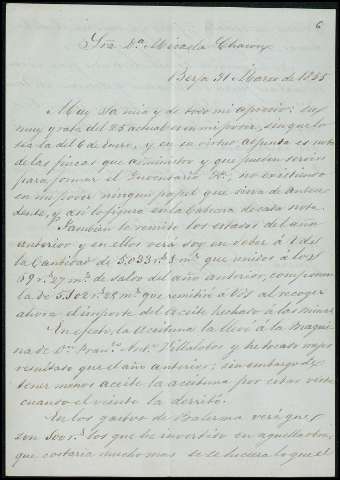 6
Sra. Da. Micaela Chacon
Berja 31 Marzo de 1855
Muy Sa. mia y de todo mi aprecio: su
muy grata del 25 actual es en mi poder, sin que lo
sea la del 6 de Enero, y en su virtud adjunta es nota
de las fincas que administro y que pueden servir
para formar el Inventario &c, no existiendo
en mi poder ningun papel que sirva de antece
dente, y asi lo figura en la Cabeza de cada nota.
Tambien le remito los estados del año
anterior y en ellos verá soy en deber á Vd.
la Cantidad de 5.033 rs. que unidos á los
69 rs. 27 ms. de saldo del año anterior, componen
la de 5.102 rs. 28 ms. que remitiré á Vd. al recoger
ahora el importe del aceite hechado á las minas
En efecto, la aceituna la llevé á la Maqui
na de Dn. Franco. Anto. Villalobos y ha tocado mejor
resultado que el año anterior; sin embargo de
tener menos aceite la aceituna por estar verde
cuando el viento la derribó.
En los gastos de Balerma verá que
son 500 rs. los que he invertido en aquella obra,
que costaria mucho mas se se hiciera lo que el